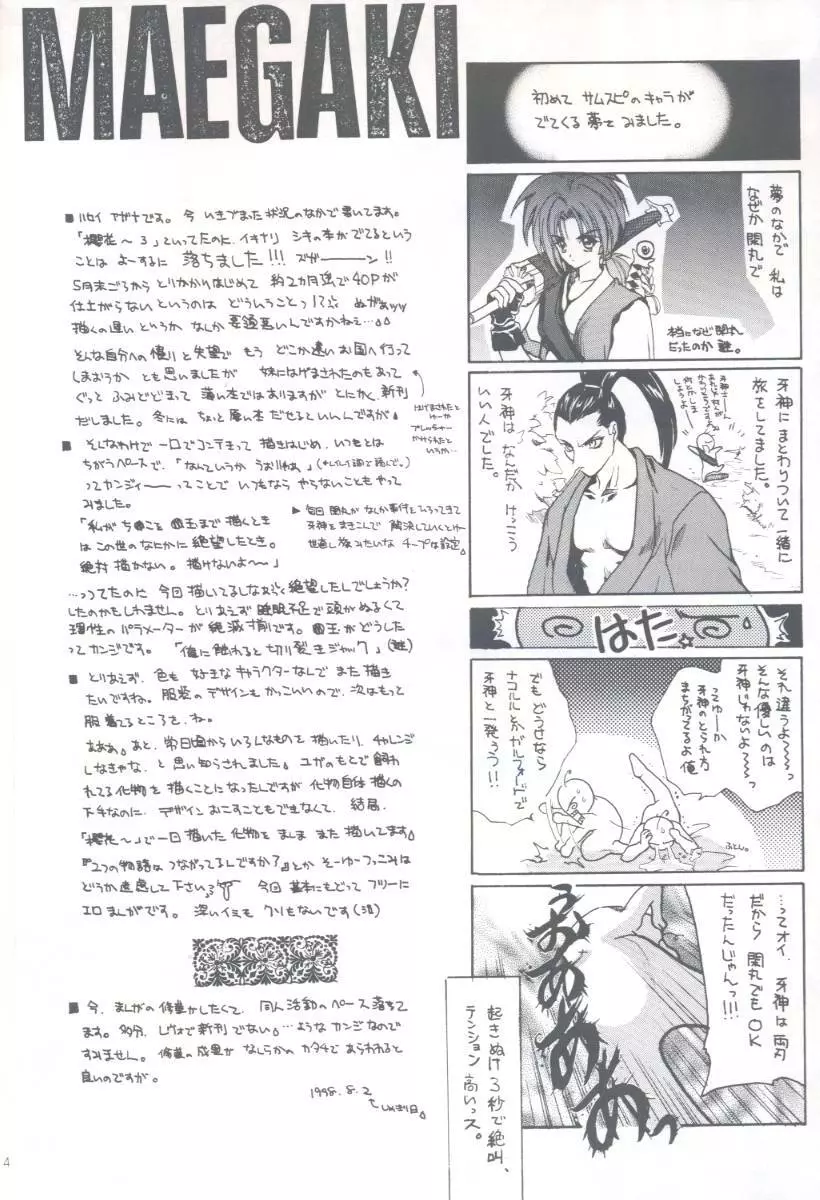 MAEGAKI
■ ハセイ アガナです。今 いきづまった状況のなかで書いてます。
「櫻花〜3」といってたのに、イキナリ シキの本がでてるという
ことは よーするに 落ちました!!! ズガーーーン!!
5月末ごろから とりかかりはじめて 約2カ月強で40Pが
仕上がらないというのは どういうことっ!?
描くの遅い というか なんか要領悪いんですかねぇ…
そんな自分への憤りと失望で もう どこか遠いお国へ行って
しまおうか とも思いましたが 妹にはげまされたのもあって
ぐっと ふみとどまって 薄い本ではありますが とにかく、新刊
だしました。冬には ちょっと厚い本 だせるといいんですが
はげまされたと
ゆーか
プレッシャー
かけられたと
いうか…
■ そんなわけで 一口でコンテきって 描きはじめ、いつもとは
ちがうペースで、「なんていうか
ってカンジィーーーってことで いつもなら やらないこともやって
みました。
「私が
はこの世のなにかに絶望したとき。
絶対描かない。描けないよ〜〜」
▶ 毎回 閑丸が なんか事件をひろってきて
牙神をまきこんで 解決していくとゆー
世直し旅みたいな チープな設定。
…ってたのに 今回描いてるしなぁ 絶望したんでしょうか?
したのかもしれません。とりあえず 睡眠不足で頭がぬるくて
理性のパラメーターが 絶滅寸前です。
ってカンジです。「俺に触れると切り裂きジャック」(謎)
■ とりあえず、色も 好きなキャラクターなんで また描き
たいですね。服装のデザインもかっこいいので、次はもって
服着てるところを、ね。
あああ。あと、常日頃からいろんなものを描いたり、チャレンジ
しなきゃな、と 思い知らされました。ユガのもとで飼わ
れてる化物を描くことになったんですが 化物自体描くの
下手なのに、デザインおこすこともできなくて、結局
「櫻花〜」で一日描いた化物を まんま また描いてます。
『2つの物語はつながってるんですか?』とか そーゆーつっこみは
どうか遠慮して下さい。今回 基本にもどって フツーに
エロまんがです。深いイミも クソもないです(泣)
■ 今、まんがの修業がしたくて、同人活動のペース落ちて
ます。多分、レヴォで新刊でない。…ようなカンジなので
すみません。修業の成果がなんらかの カタチであらわれると
良いのですが。
1998.8.2
しめきり日。
初めて サムスピのキャラが
でてくる夢をみました。
夢のなかで 私は
なぜか 閑丸で
本当になぜ閑丸
だったのか 謎。
牙神にまとわりついて一緒に
旅をしてました。
牙神は なんだか けっこう
いい人でした。
はた☆
それ違うよ〜〜〜っ
そんな優しいのは
牙神じゃないよ〜〜っ
ってゆーか
牙神のとられ方
まちがってるよ俺
でも どうせなら
ナコルルとかガルフォードで
牙神と一発ぅう!!
ふとん。
…ってオイ、牙神は 両刃
だから 閑丸でもOK
だったんじゃんっ!!!
うおおああああぁっ
起きぬけ3秒で絶叫、
テンション高いっス。
4